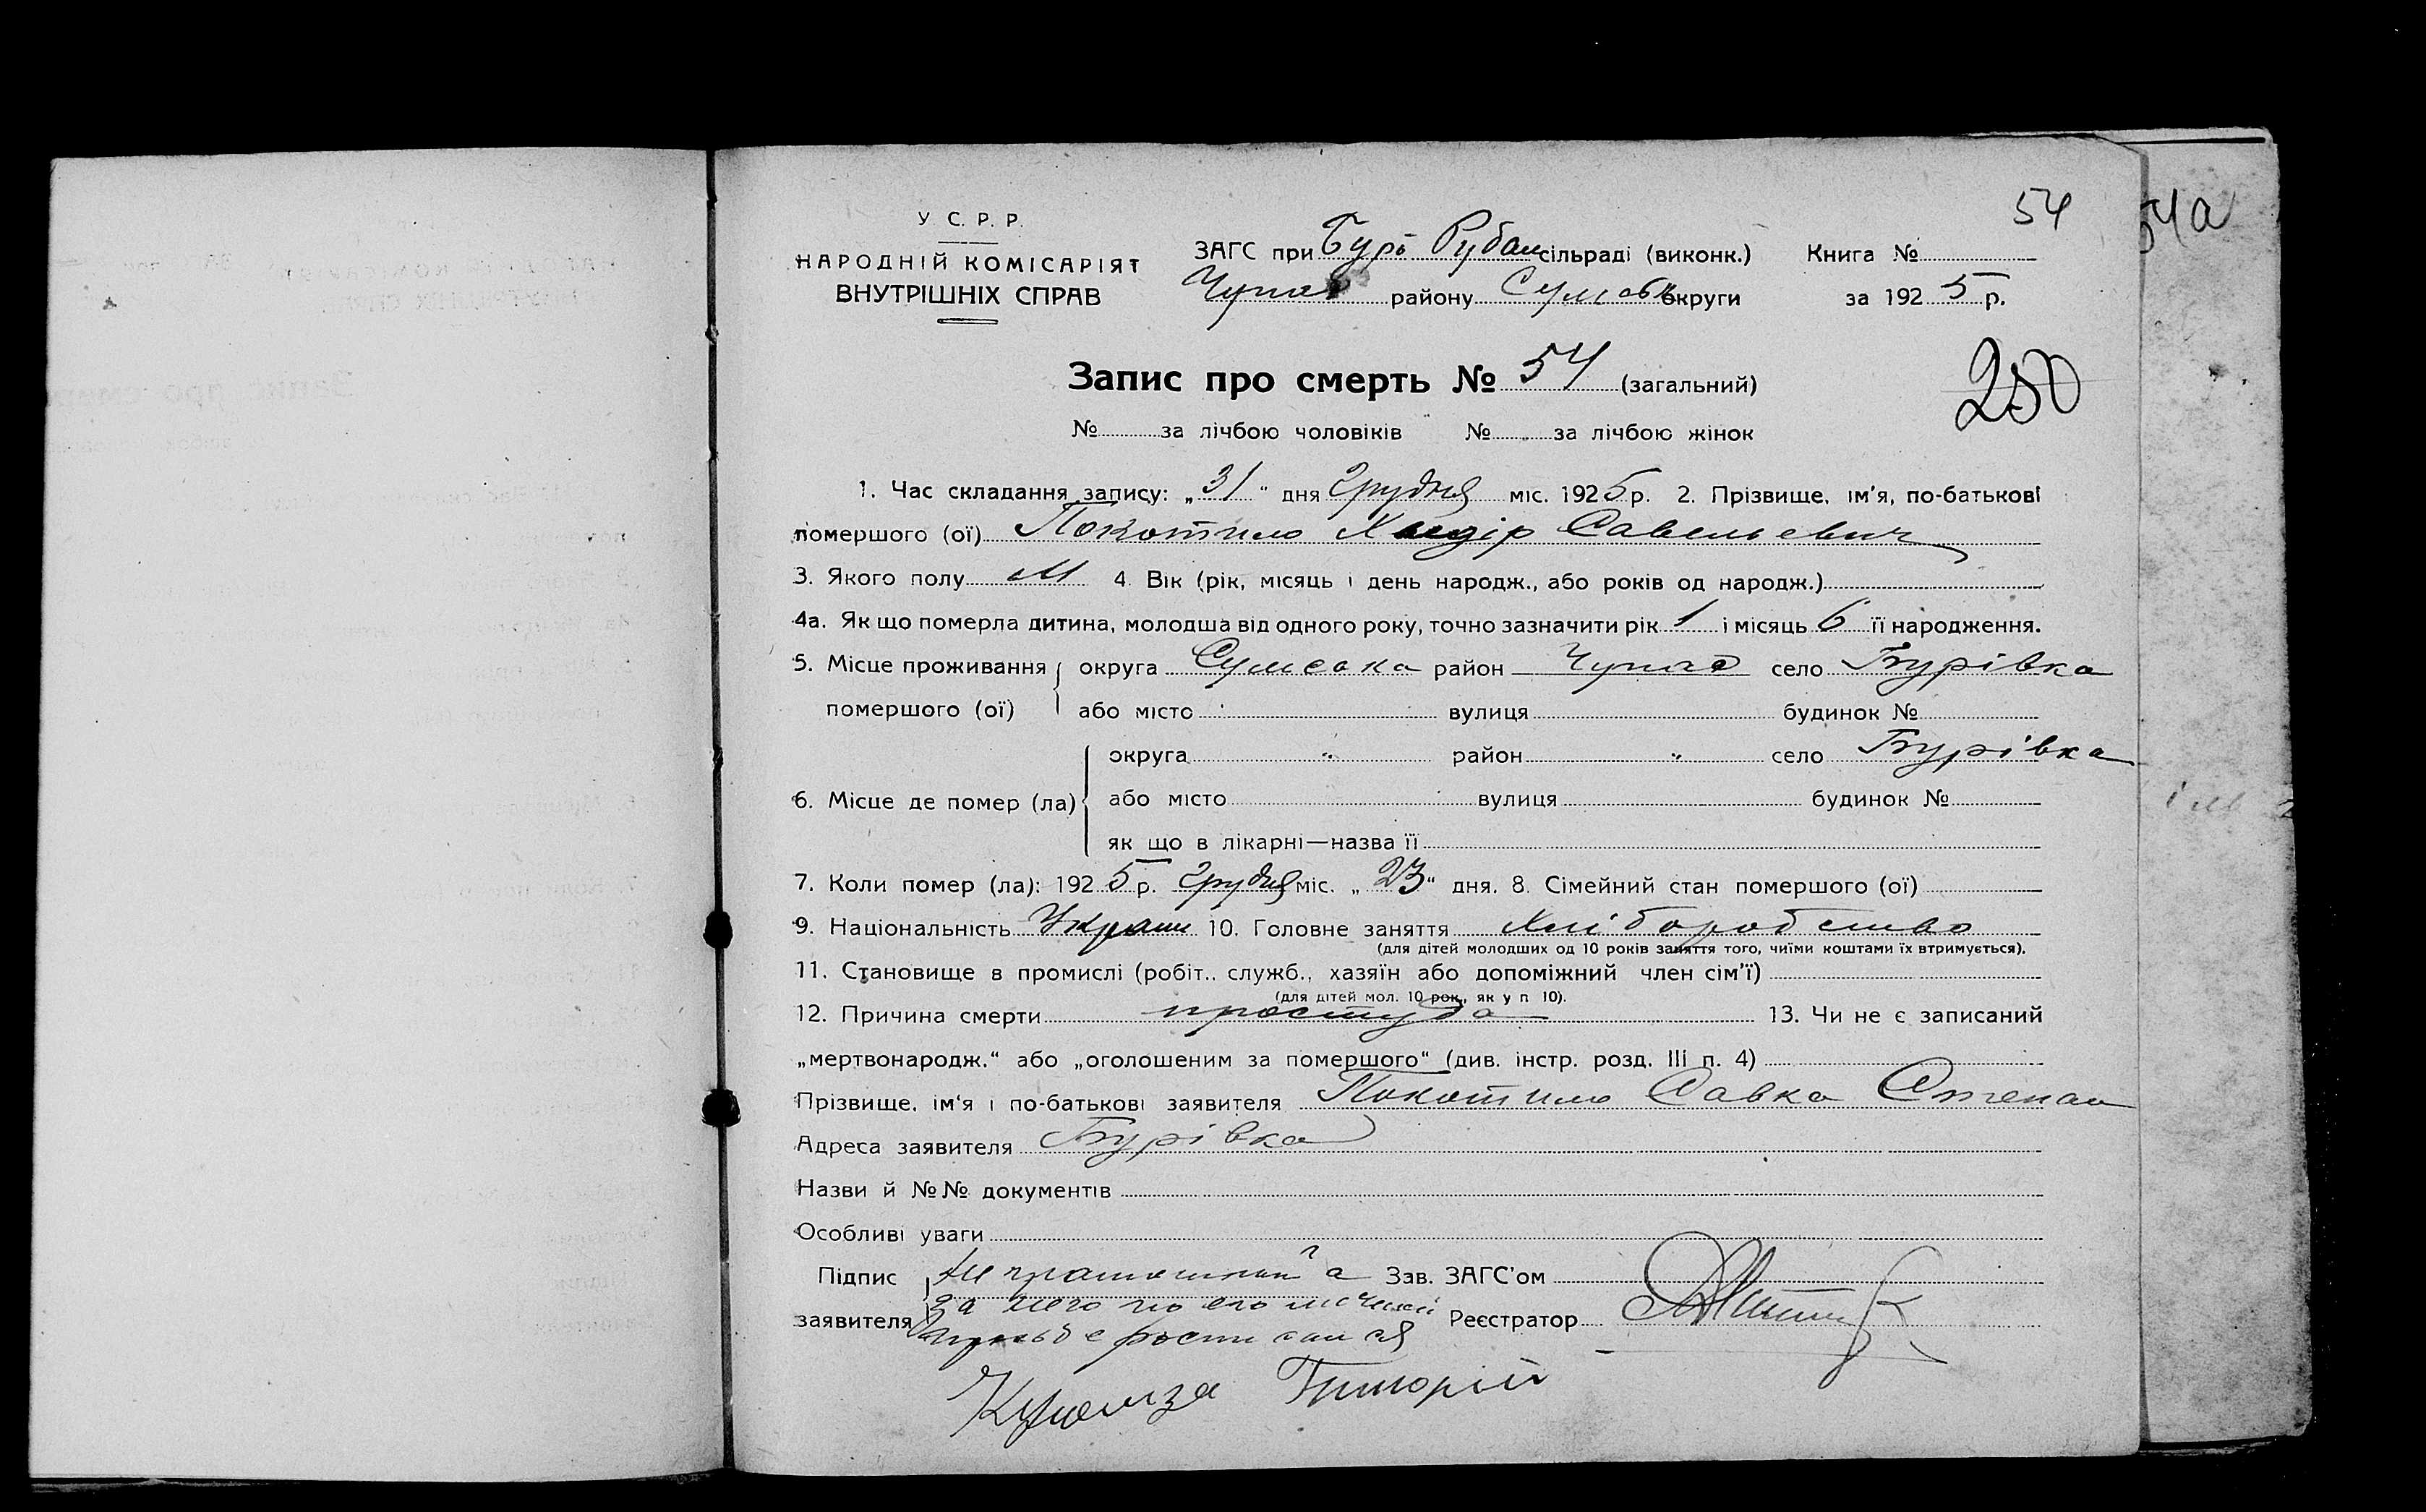 54
54а
У С. Р. Р.
НАРОДНІЙ КОМІСАРІЯТ
ВНУТРІШНІХ СПРАВ
ЗАГС при Буръ Рубан сільраді (виконк.) Книга №
Чупах району Сумськ округи за 1925 р.
Запис про смерть № 54 (загальний)
250
№ за лічбою чоловіків № за лічбою жінок
1. Час складання запису: „31" дня Грудня міс. 1925 р. 2. Прізвище, ім'я, по-батькові
помершого (ої) Покотило Савельевич
3. Якого полу М 4. Вік (рік, місяць і день народж., або років од народж.)
4а. Як що померла дитина, молодша від одного року, точно зазначити рік 1 і місяць 6 її народження.
5. Місце проживання помершого (ої) округа Сумська район Чупах село Бурівка
або місто вулиця будинок №
6. Місце де помер (ла) округа " район " село Бурівка
або місто вулиця будинок №
як що в лікарні—назва її
7. Коли помер (ла): 1925 р. Грудня міс. „23" дня. 8. Сімейний стан помершого (ої)
9. Національність Украин 10. Головне заняття хліборобство
(для дітей молодших од 10 років заняття того, чиїми коштами їх втримується).
11. Становище в промислі (робіт., служб., хазяїн або допоміжний член сім'ї)
(для дітей мол. 10 рок., як у п 10).
12. Причина смерти простуда 13. Чи не є записаний
„мертвонародж." або „оголошеним за помершого" (див. інстр. розд. III п. 4)
Прізвище, ім'я і по-батькові заявителя Покотило Савка Степан
Адреса заявителя Бурівка
Назви й №№ документів
Особливі уваги
Підпис заявителя неграмотний а Зав. ЗАГС'ом
за него по его личной Реєстратор
просьбе ростписался
Григорій